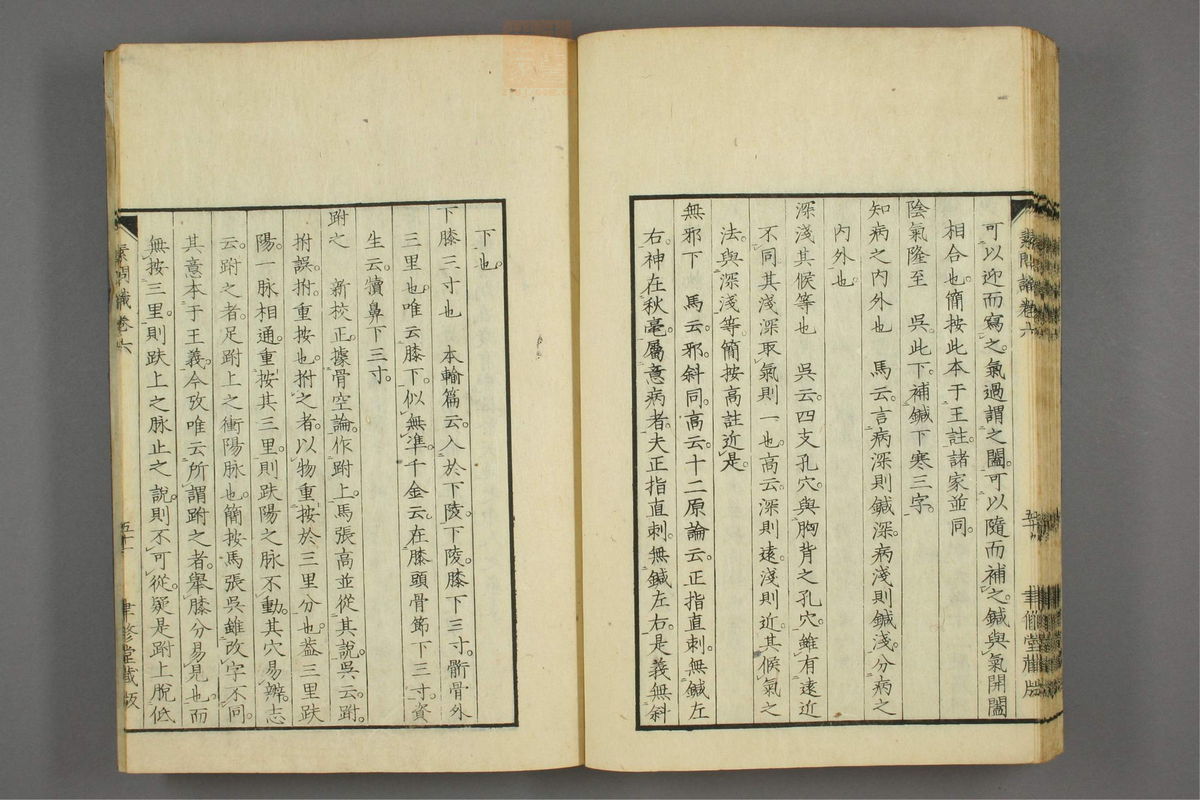 素問識卷六
聿修堂藏版
可以迎而寫之氣過謂之闔可以隨而補之鍼與氣開闔
相合也簡按此本于王註諸家並同
陰氣隆至 吳此下補鍼下寒三字
知病之內外也 馬云言病深則鍼深病淺則鍼淺分病之
內外也
深淺其候等也 吳云四支孔穴與胸背之孔穴雖有遠近
不同其淺深取氣則一也高云深則遠淺則近其候氣之
法與深淺等簡按高註近是
無邪下 馬云邪斜同高云十二原論云正指直刺無鍼左
右神在秋毫屬意病者夫正指直刺無鍼左右是義無斜
下也
下膝三寸也 本輸篇云入於下陵下陵膝下三寸䯒骨外
三里也唯云膝下似無準千金云在膝頭骨節下三寸資
生云犢鼻下三寸
跗之 新校正據骨空論作跗上馬張高並從其說吳云跗
拊誤拊重按也拊之者以物重按於三里分也蓋三里趺
陽一脉相通重按其三里則趺陽之脉不動其穴易辨志
云跗之者足跗上之衝陽脉也簡按馬張吳雖改字不同
其意本于王義今攷唯云所謂跗之者舉膝分易見也而
無按三里則趺上之脉止之說則不可從疑是跗上脫低
素問識卷六
五十一
聿修堂藏版